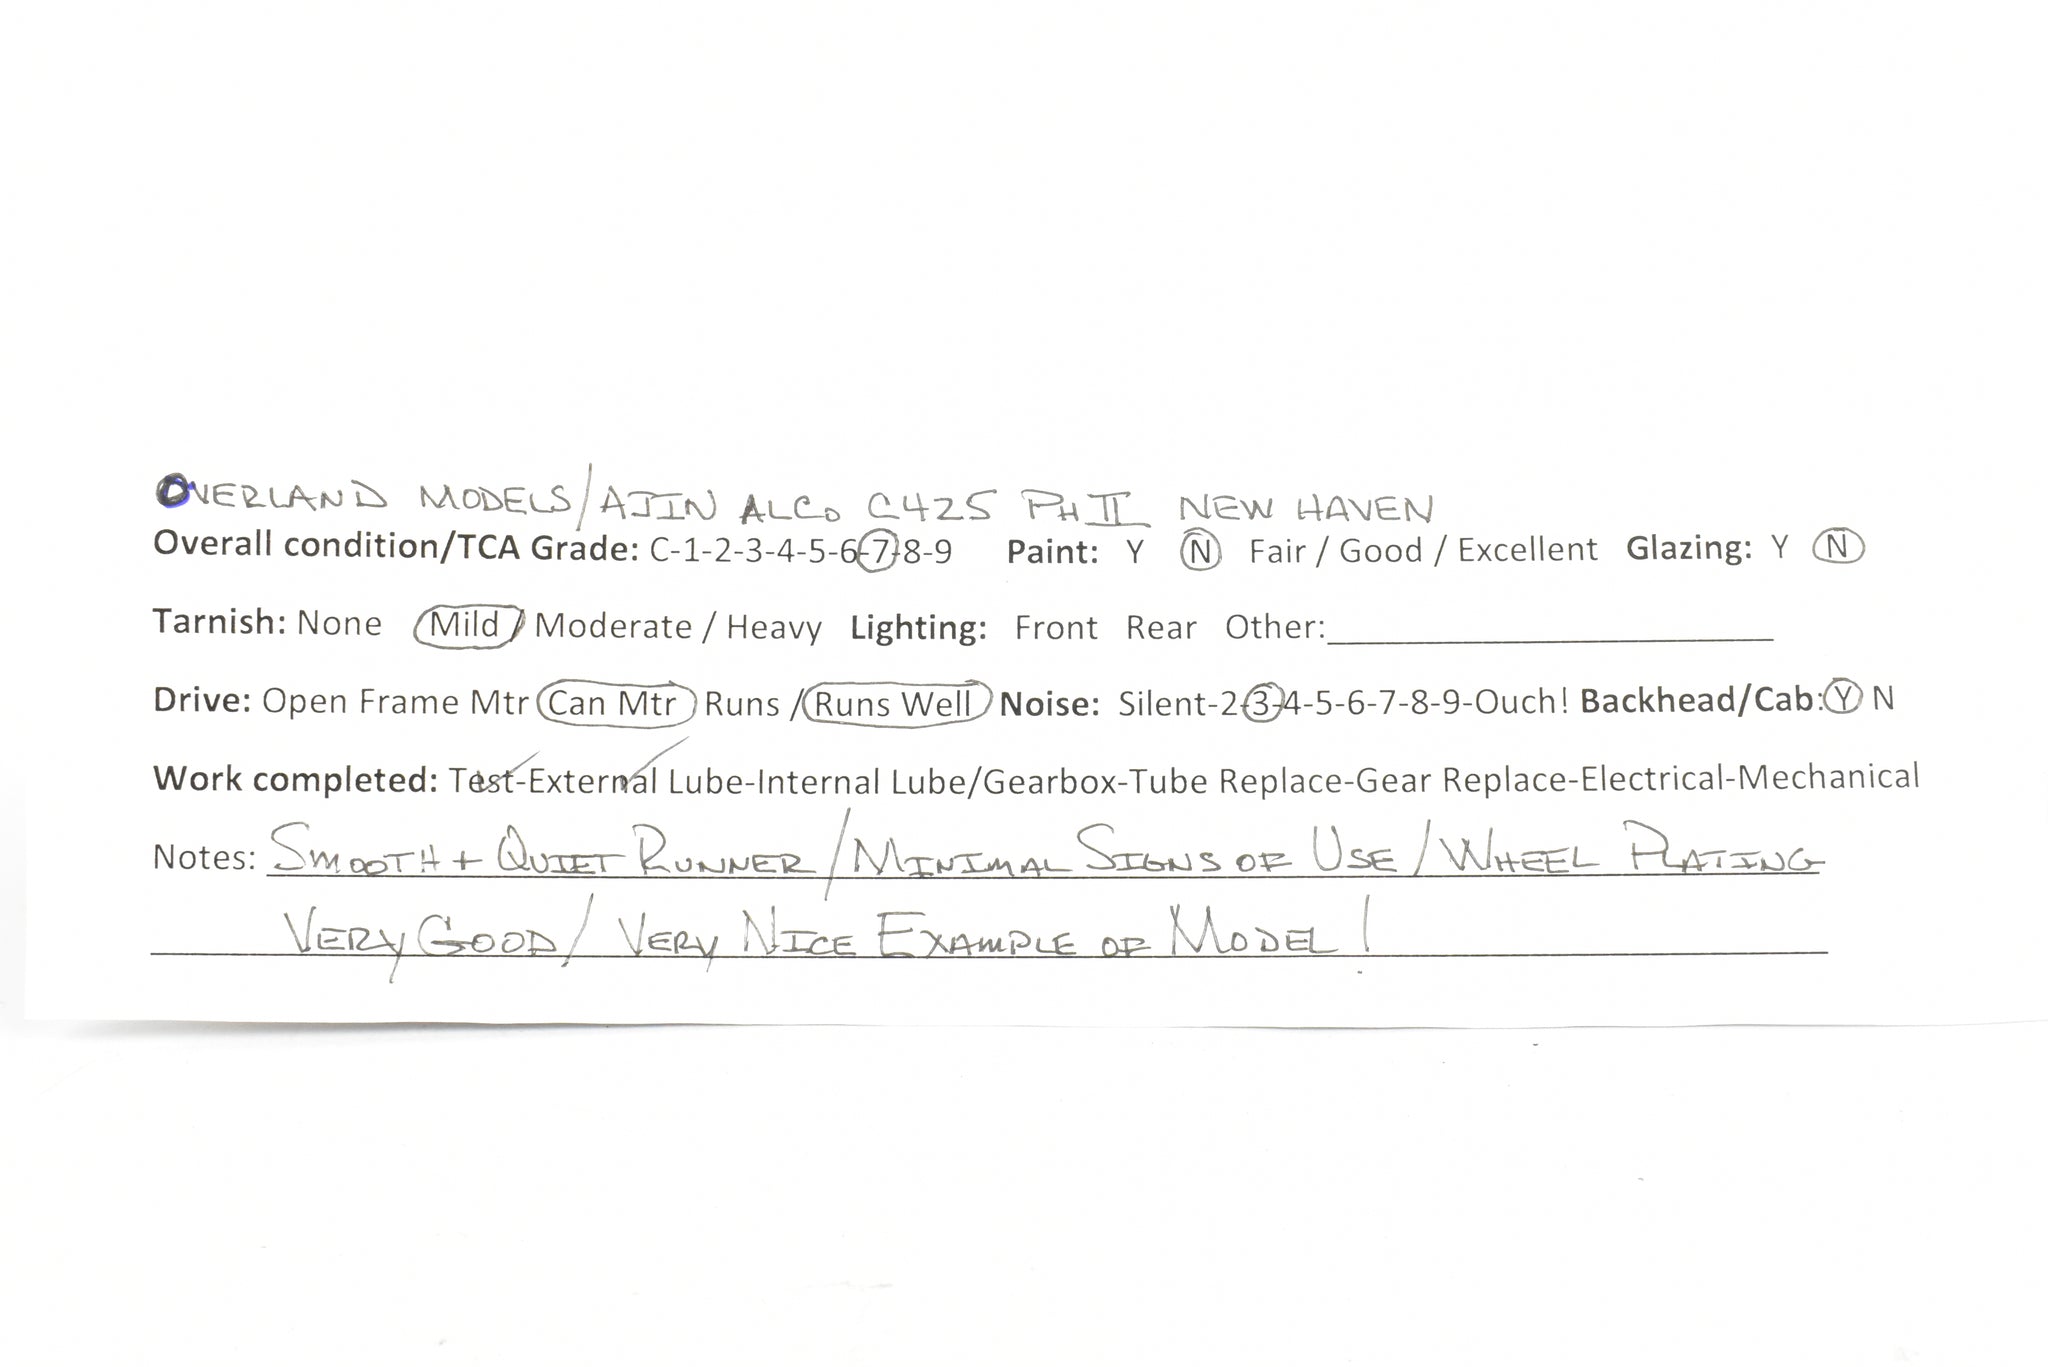 OVERLAND MODELS/AJIN ALCO C425 PH II NEW HAVEN
Overall condition/TCA Grade: C-1-2-3-4-5-6-7-8-9 Paint: Y N Fair / Good / Excellent Glazing: Y N
Tarnish: None Mild / Moderate / Heavy Lighting: Front Rear Other:
Drive: Open Frame Mtr Can Mtr Runs / Runs Well Noise: Silent-2-3-4-5-6-7-8-9-Ouch! Backhead/Cab: Y N
Work completed: Test-External Lube-Internal Lube/Gearbox-Tube Replace-Gear Replace-Electrical-Mechanical
Notes: SMOOTH + QUIET RUNNER/MINIMAL SIGNS OF USE/WHEEL PLATING
VERY GOOD/ VERY NICE EXAMPLE OF MODEL!